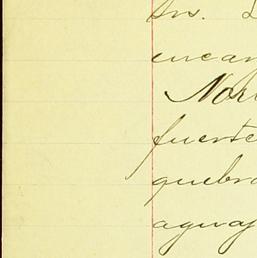 Drs. L
encar
Nor
fuerte
quebra
aguaj